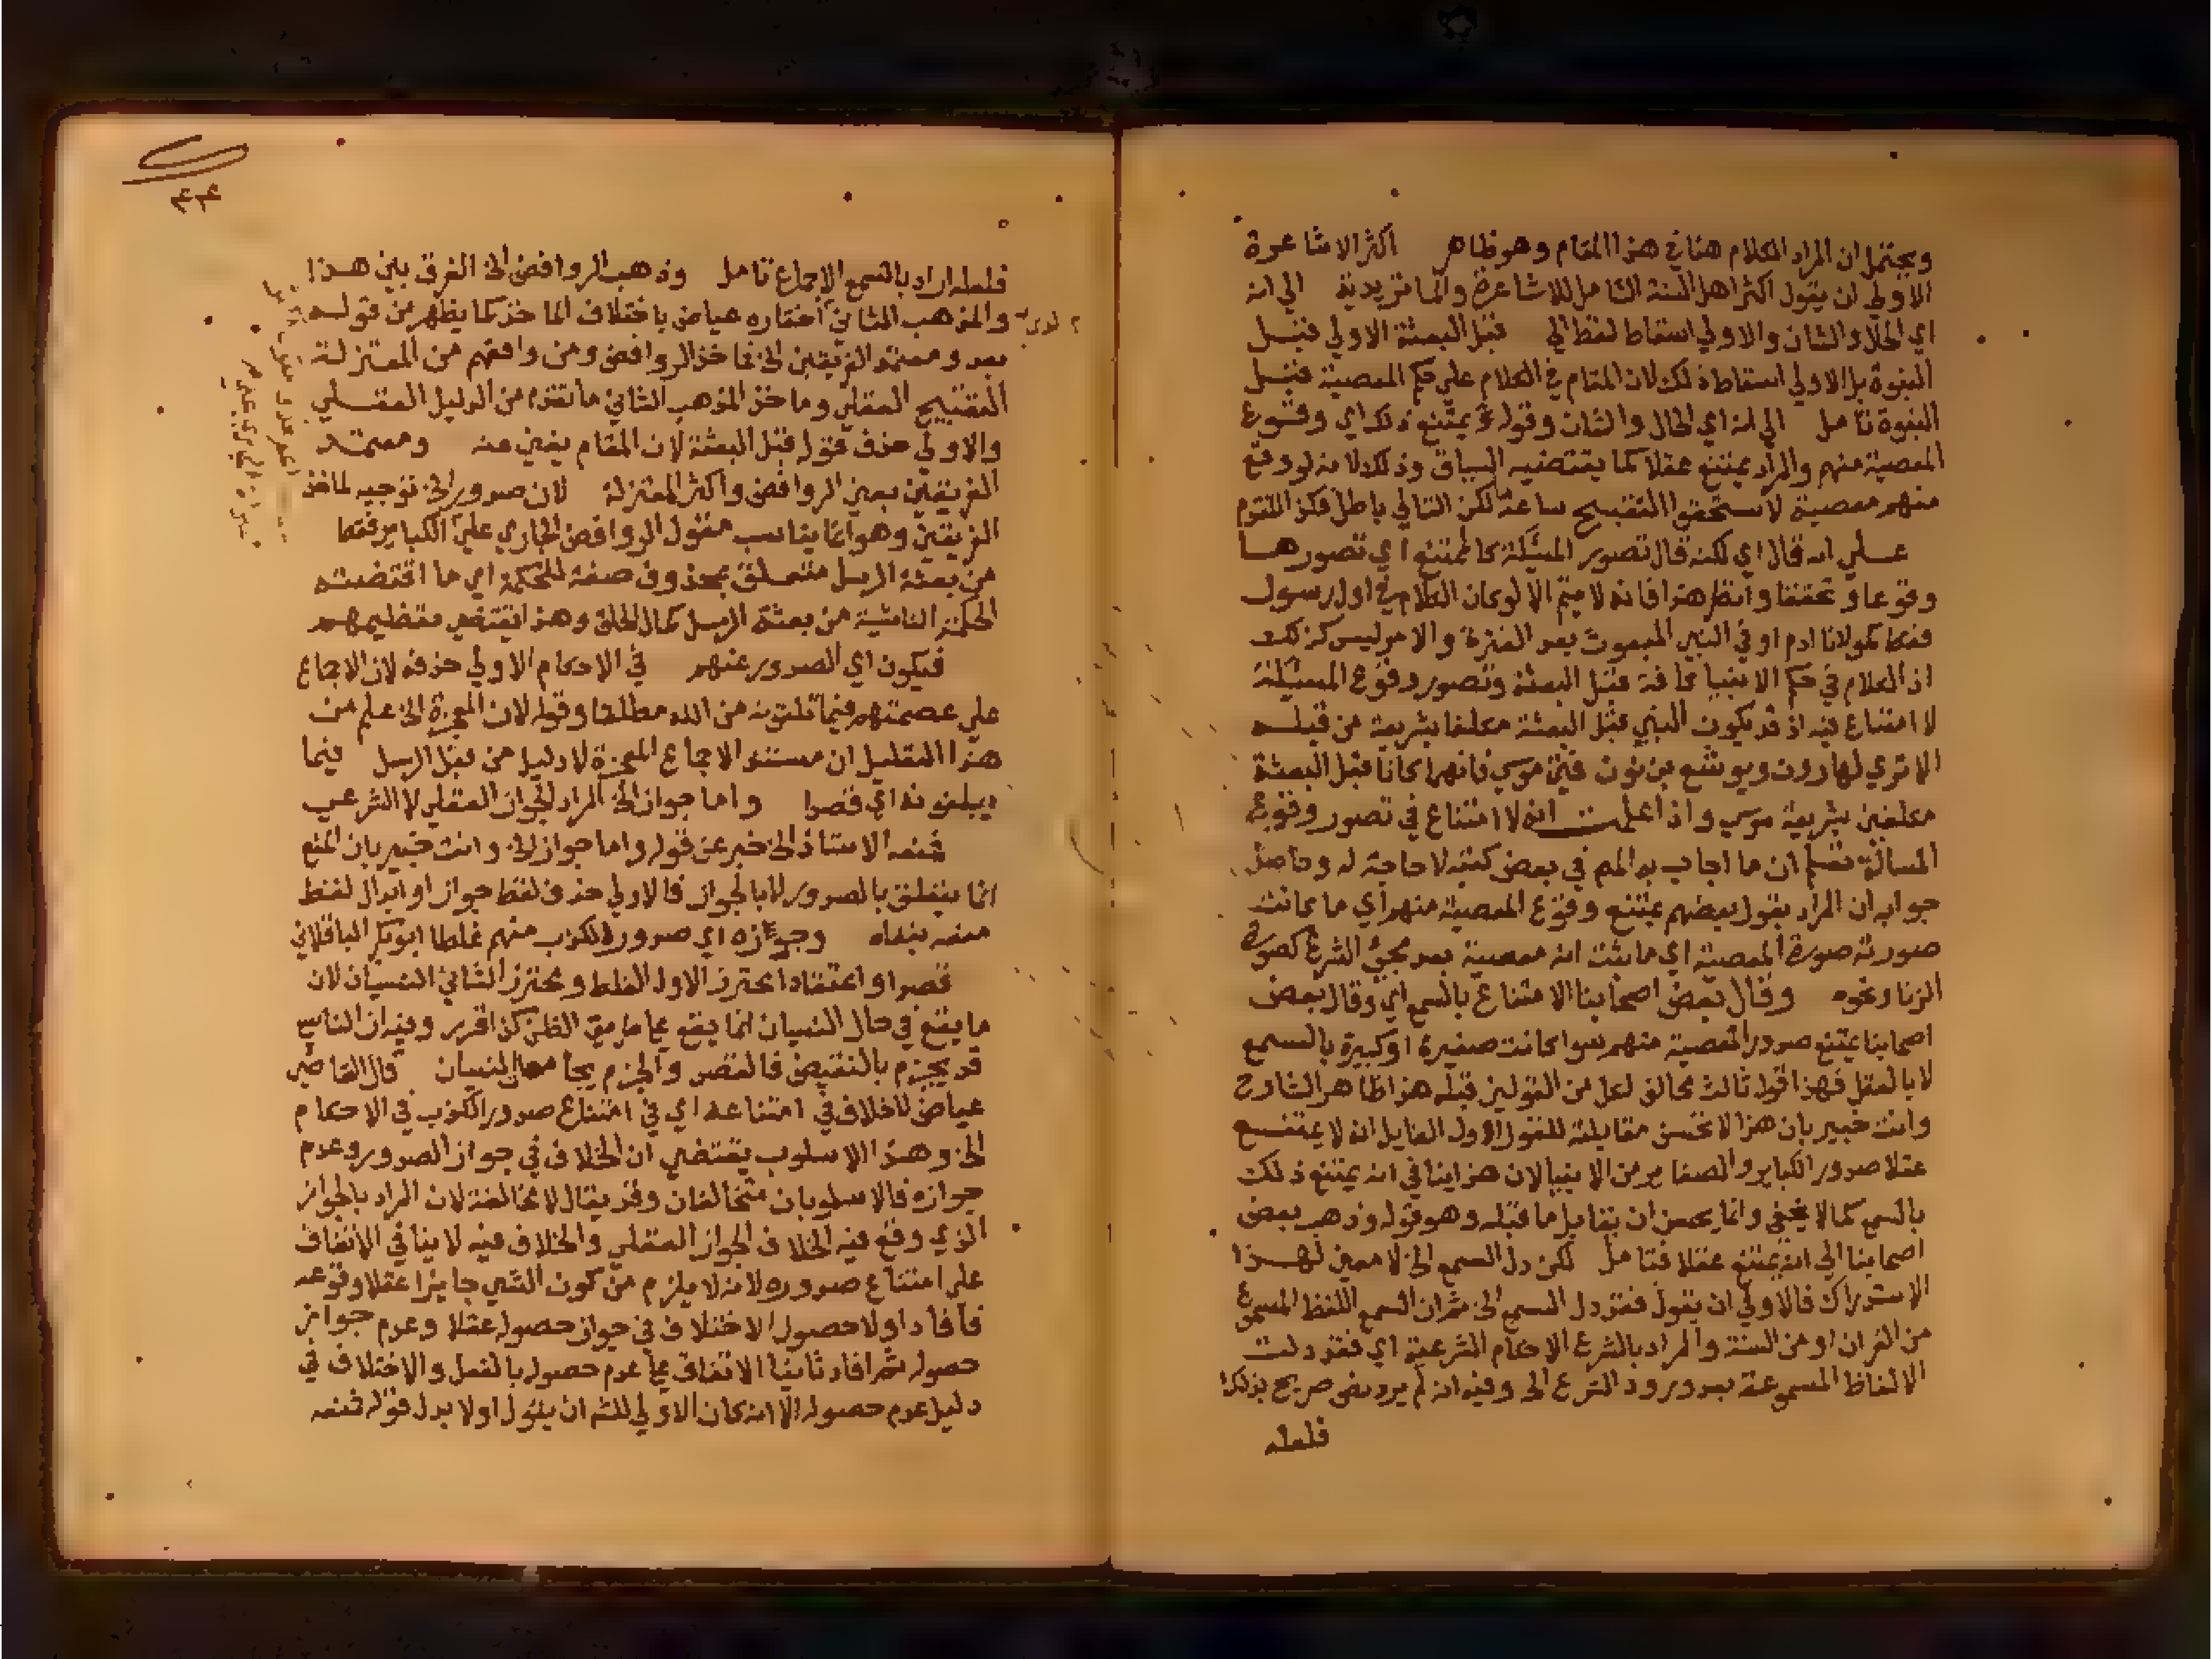 ويحتمل ان المراد الكلام هنا في هذا المقام وهو ظاهر اكثر الاشاعرة
الاولي ان يقول اكثر اهل السنة الشامل للاشاعرة والماتريدية الي انه
اي الحال والشان والاولي اسقاط لفظ الي قبل البعثة الاولي قبل
النبوة بل الاولي اسقاط ذلك لان المقام في الكلام علي حكم المعصية قبل
النبوة تامل الي انه اي الحال والشان وقوله يمتنع ذلك اي وقوع
المعصية منهم والمراد يمتنع عقلا كما يقتضيه السياق وذلك لانه لو وقع
منهم معصية لاستحقوا التقبيح ساعة لكن التالي باطل فكذا المقدم
علي انه قال اي لكنه قال تصور المسئلة كالممتنع اي تصورها
وقوعا وتحققا وانظر هذا فانه لا يتم الا لو كان الكلام في اول رسول
فقط كمولانا ادم او في النبي المبعوث بعد الفترة والامر ليس كذلك
اذ الكلام في حكم الانبيا كافة قبل البعثة وتصور وقوع المسئلة
لا امتناع فيه اذ قد يكون النبي قبل البعثة مكلفا بشريعة من قبله
الا تري لهارون ويوشع بن نون فتي موسي فانهما كانا قبل البعثة
مكلفين بشريعة موسي واذا علمت انه لا امتناع في تصور وقوع
المسالة تعلم ان ما اجاب به المص في بعض كتبه لا حاجة له وحاصل
جوابه ان المراد بقول بعضهم يمتنع وقوع المعصية منهم اي ما كانت
صورته صورة المعصية اي ما يثبت انه معصية بعد مجئ الشرع كصورة
الزنا ونحوه وقال بعض اصحابنا الامتناع بالسمع اي وقال بعض
اصحابنا يمتنع صدور المعصية منهم سوا كانت صغيرة او كبيرة بالسمع
لا بالعقل فهذا قول ثالث مخالف لكل من القولين قبله هذا ظاهر الشارح
وانت خبير بان هذا لا تحسن مقابلته للقول الاول القايل انه لا يمتنع
عقلا صدور الكباير والصغاير من الانبيا لان هذا ينافي انه يمتنع ذلك
بالسمع كما لا يخفي وانما يحسن ان يقابل ما قبله وهو قوله وذهب بعض
اصحابنا الي انه يمتنع عقلا فتامل لكن دل السمع الخ لا معين لهذا
الاستدراك فالاولي ان يقول فقد دل السمع الخ ثم ان السمع اللفظ المسموع
من القران او من السنة والمراد بالشرع الاحكام الشرعية اي فقد دلت
الالفاظ المسموعة بعد ورود الشرع الخ وفيه انه لم يرد نص صريح بذلك
فلعله
٤٤
فلعله اراد بالسمع الاجماع تامل وذهب الروافض الخ الفرق بين هذا
والمذهب الثاني اختاره عياض باختلاف الماخذ كما يظهر من قوله
بعد ومعتمد الفريقين الخ فماخذ الروافض ومن وافقهم من المعتزلة
التقبيح العقلي وماخذ المذهب الثاني ما تقدم من الدليل العقلي
والاولي حذف قوله قبل البعثة لان المقام يغني عنه ومعتمد
الفريقين يعني الروافض واكثر المعتزلة لان صدور الخ توجيه لماخذ
الفريقين وهو انما يناسب منقول الروافض الجاري علي الكباير فقط
من بعثة الرسل متعلق بمحذوف صفة للحكمة اي ما اقتضته
الحكمة الناشية من بعثة الرسل كمال الخلق وهذا يقتضي تعظيمهم
فيكون اي الصدور عنهم في الاحكام الاولي حذفه لان الاجماع
علي عصمتهم فيما تلقونه من الله مطلقا وقوله لان المعجزة الخ علم من
هذا التعليل ان مستند الاجماع المعجزة لا دليل من قبل الرسل فيما
يبلغونه اي قصدا واما جواز الخ المراد الجواز العقلي لا الشرعي
فمنعه الاستاذ الخ خبر عن قوله واما جواز الخ وانت خبير بان المنع
انما يتعلق بالصدور لا بالجواز فالاولي حذف لفظ جواز او ابدال لفظ
منعه بنفاه وجوازه اي صدور الكذب منهم غلطا ابو بكر الباقلاني
قصدا او اعتقادا محترز الاول الغلط ومحترز الثاني النسيان لان
ما يقع في حال النسيان انما يقع علي طريق الظن كذا قرر وفيه ان الناسي
قد يجزم بالنقيض فالقصد والجزم يجامعان النسيان قال القاضي
عياض لا خلاف في امتناعه اي في امتناع صدور الكذب في الاحكام
الخ وهذا الاسلوب يقتضي ان الخلاف في جواز الصدور وعدم
جوازه فالاسلوبان متخالفان وقد يقال لا مخالفة لان المراد بالجواز
الذي وقع فيه الخلاف الجواز العقلي والخلاف فيه لا ينافي الاتفاق
علي امتناع صدوره لانه لا يلزم من كون الشي جايزا عقلا وقوعه
فافاد اولا حصول الاختلاف في جواز حصوله عقلا وعدم جواز
حصوله ثم افاد ثانيا الاتفاق علي عدم حصوله بالفعل والاختلاف في
دليل عدم حصوله الا انه كان الاولي للش ان يقول اولا بدل قوله فمنعه